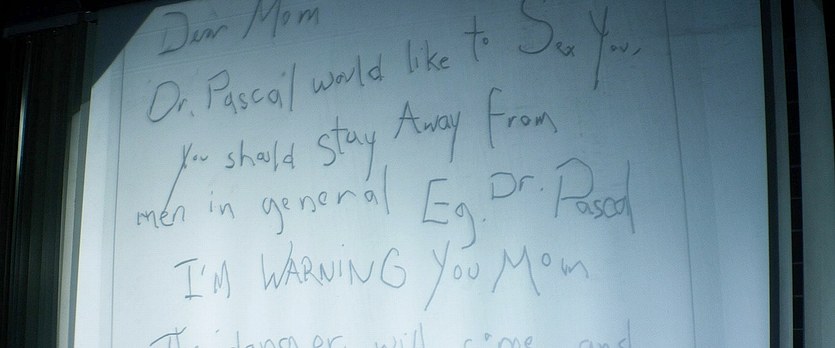 Dear Mom
Dr. Pascal would like to Sex You.
You should Stay Away from
men in general Eg. Dr. Pascal
I'M WARNING You Mom
danger will come and